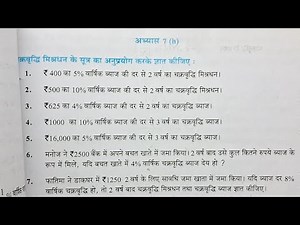 अध्याय 7 (b)
क्रवृद्धि मिश्रधन के सूत्र का अनुप्रयोग करके ज्ञात कीजिए :
1. ₹400 का 5% वार्षिक ब्याज की दर से 2 वर्ष का चक्रवृद्धि मिश्रधन।
2. ₹500 का 10% वार्षिक ब्याज की दर से 2 वर्ष का चक्रवृद्धि मिश्रधन।
3. ₹625 का 4% वार्षिक ब्याज की दर से 2 वर्ष का चक्रवृद्धि ब्याज।
4. ₹1000 का 10% वार्षिक ब्याज की दर से 3 वर्ष का चक्रवृद्धि ब्याज।
5. ₹16,000 का 5% वार्षिक ब्याज की दर से 3 वर्ष का चक्रवृद्धि ब्याज।
6. मनोज ने ₹2500 बैंक में अपने बचत खाते में जमा किया। 2 वर्ष बाद उसे कुल कितने रुपये ब्याज के
रूप में मिले, यदि बचत खाते में 4% वार्षिक चक्रवृद्धि ब्याज देय हो ?
7. फातिमा ने डाकघर में ₹1250 2 वर्ष के लिए सावधि जमा खाता में जमा किया। यदि ब्याज दर 8%
वार्षिक चक्रवृद्धि हो, तो 2 वर्ष बाद चक्रवृद्धि मिश्रधन तथा चक्रवृद्धि ब्याज ज्ञात कीजिए।